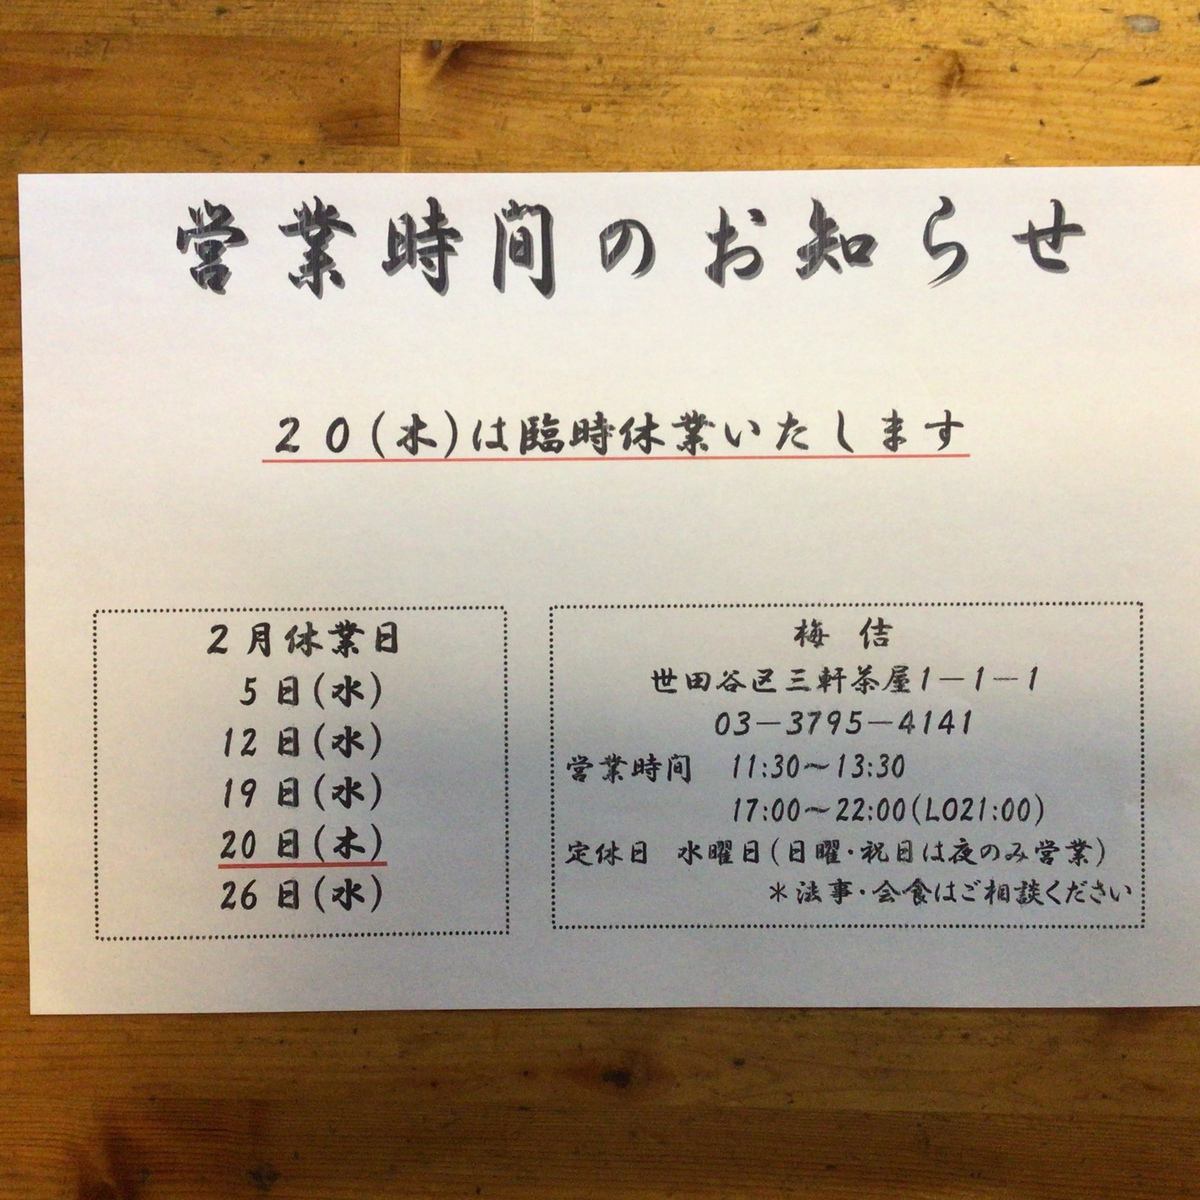 営業時間のお知らせ
２０(木)は臨時休業いたします
２月休業日
5 日(水)
12 日(水)
19 日(水)
20 日(木)
26 日(水)
梅 佶
世田谷区三軒茶屋1－1－1
03－3795－4141
営業時間 11:30～13:30
17:00～22:00(LO21:00)
定休日 水曜日(日曜・祝日は夜のみ営業)
＊法事・会食はご相談ください